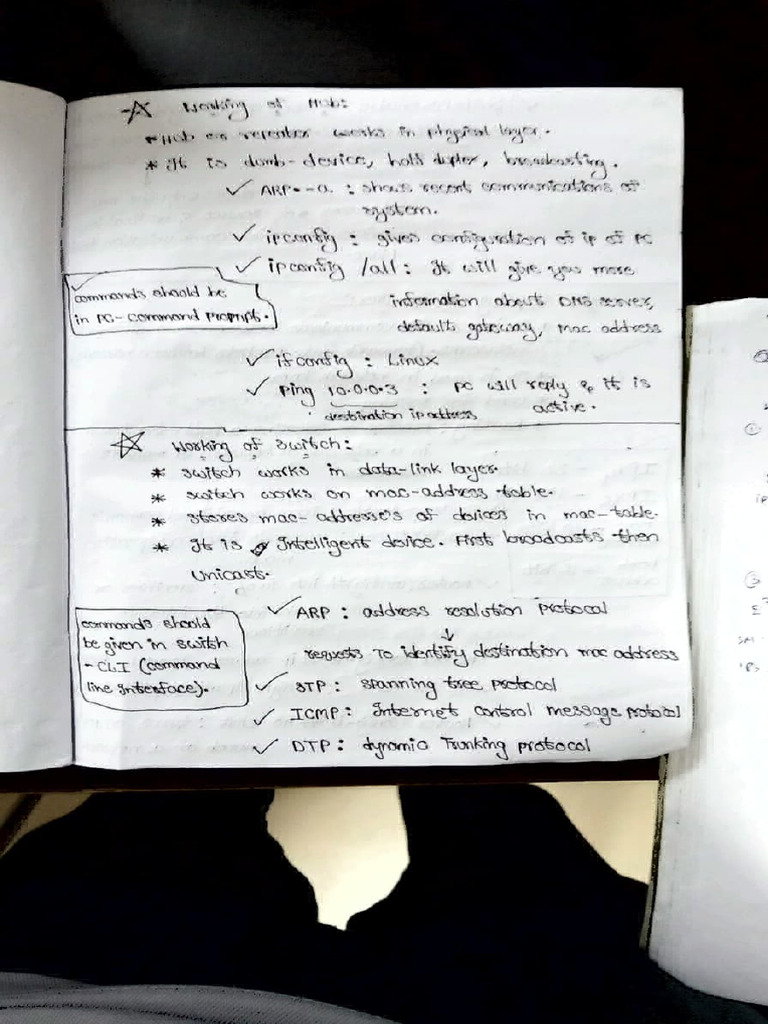 Working of Hub:
* Hub or repeater works in physical layer.
* It is dumb-device, half duplex, broadcasting.
✓ ARP--a : shows recent communications of
system.
✓ ipconfig : gives configuration of ip of PC
✓ ipconfig /all : It will give you more
information about DNS server,
default gateway, mac address
commands should be
in PC-command prompt.
✓ ifconfig : Linux
✓ Ping 10.0.0.3 : PC will reply if it is
active.
destination ip address
Working of Switch:
* switch works in data-link layer.
* switch works on mac-address table.
* stores mac-addresse's of devices in mac-table.
* It is Intelligent device. First broadcasts then
Unicast.
✓ ARP : address resolution protocol
↓
requests To identify destination mac address
commands should
be given in switch
-CLI (command
line Interface).
✓ STP : spanning tree protocol
✓ ICMP : Internet control message protocol
✓ DTP : dynamic Trunking protocol